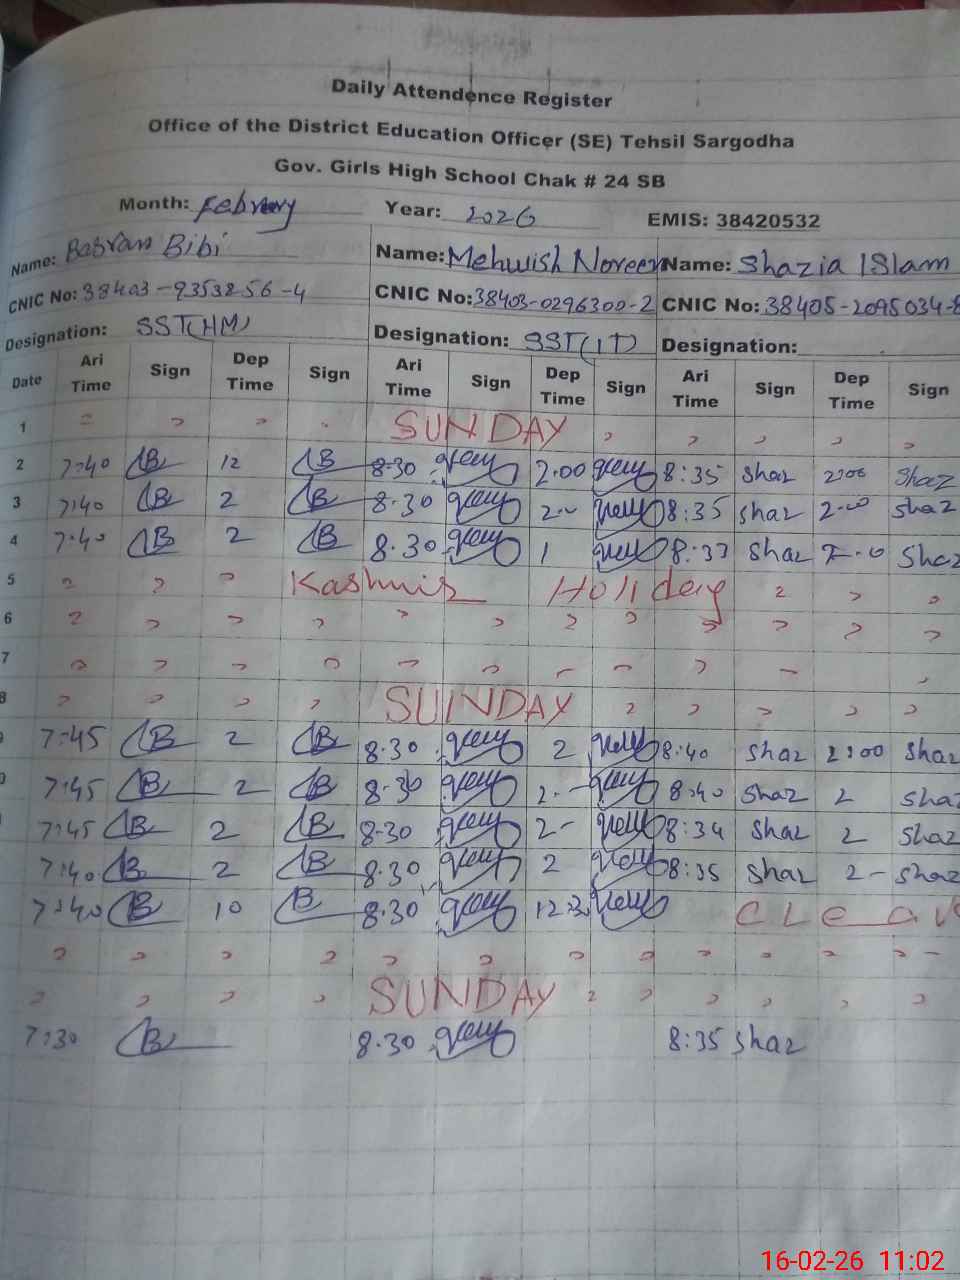 Daily Attendence Register
Office of the District Education Officer (SE) Tehsil Sargodha
Gov. Girls High School Chak # 24 SB
Month: February Year: 2026 EMIS: 38420532
Name: Bibi Name: Mehwish Noreen Name: Shazia ISlam
CNIC No: 38403-9353256-4 CNIC No: 38403-0296300-2 CNIC No: 38405-2095034-8
Designation: SST(HM) Designation: SST(IT) Designation:
Date Ari Time Sign Dep Time Sign Ari Time Sign Dep Time Sign Ari Time Sign Dep Time Sign
1 SUNDAY
2 7:40 B 12 B 8.30 2.00 8:35 Shaz 2:00 Shaz
3 7:40 B 2 B 8.30 2- 8:35 Shaz 2-00 Shaz
4 7:40 B 2 B 8.30 1 8:33 Shaz Shaz
5 Kashmir Holiday
6
7
8 SUNDAY
7:45 B 2 B 8.30 2 8:40 Shaz 2:00 Shaz
7:45 B 2 B 8.30 2- 8:40 Shaz 2 Shaz
7:45 B 2 B 8.30 2- 8:34 Shaz 2 Shaz
7:40 B 2 B 8.30 2 8:35 Shaz 2- Shaz
7:40 B 10 B 8.30 12:3 C Leav
SUNDAY
7:30 B 8.30 8:35 Shaz
16-02-26 11:02